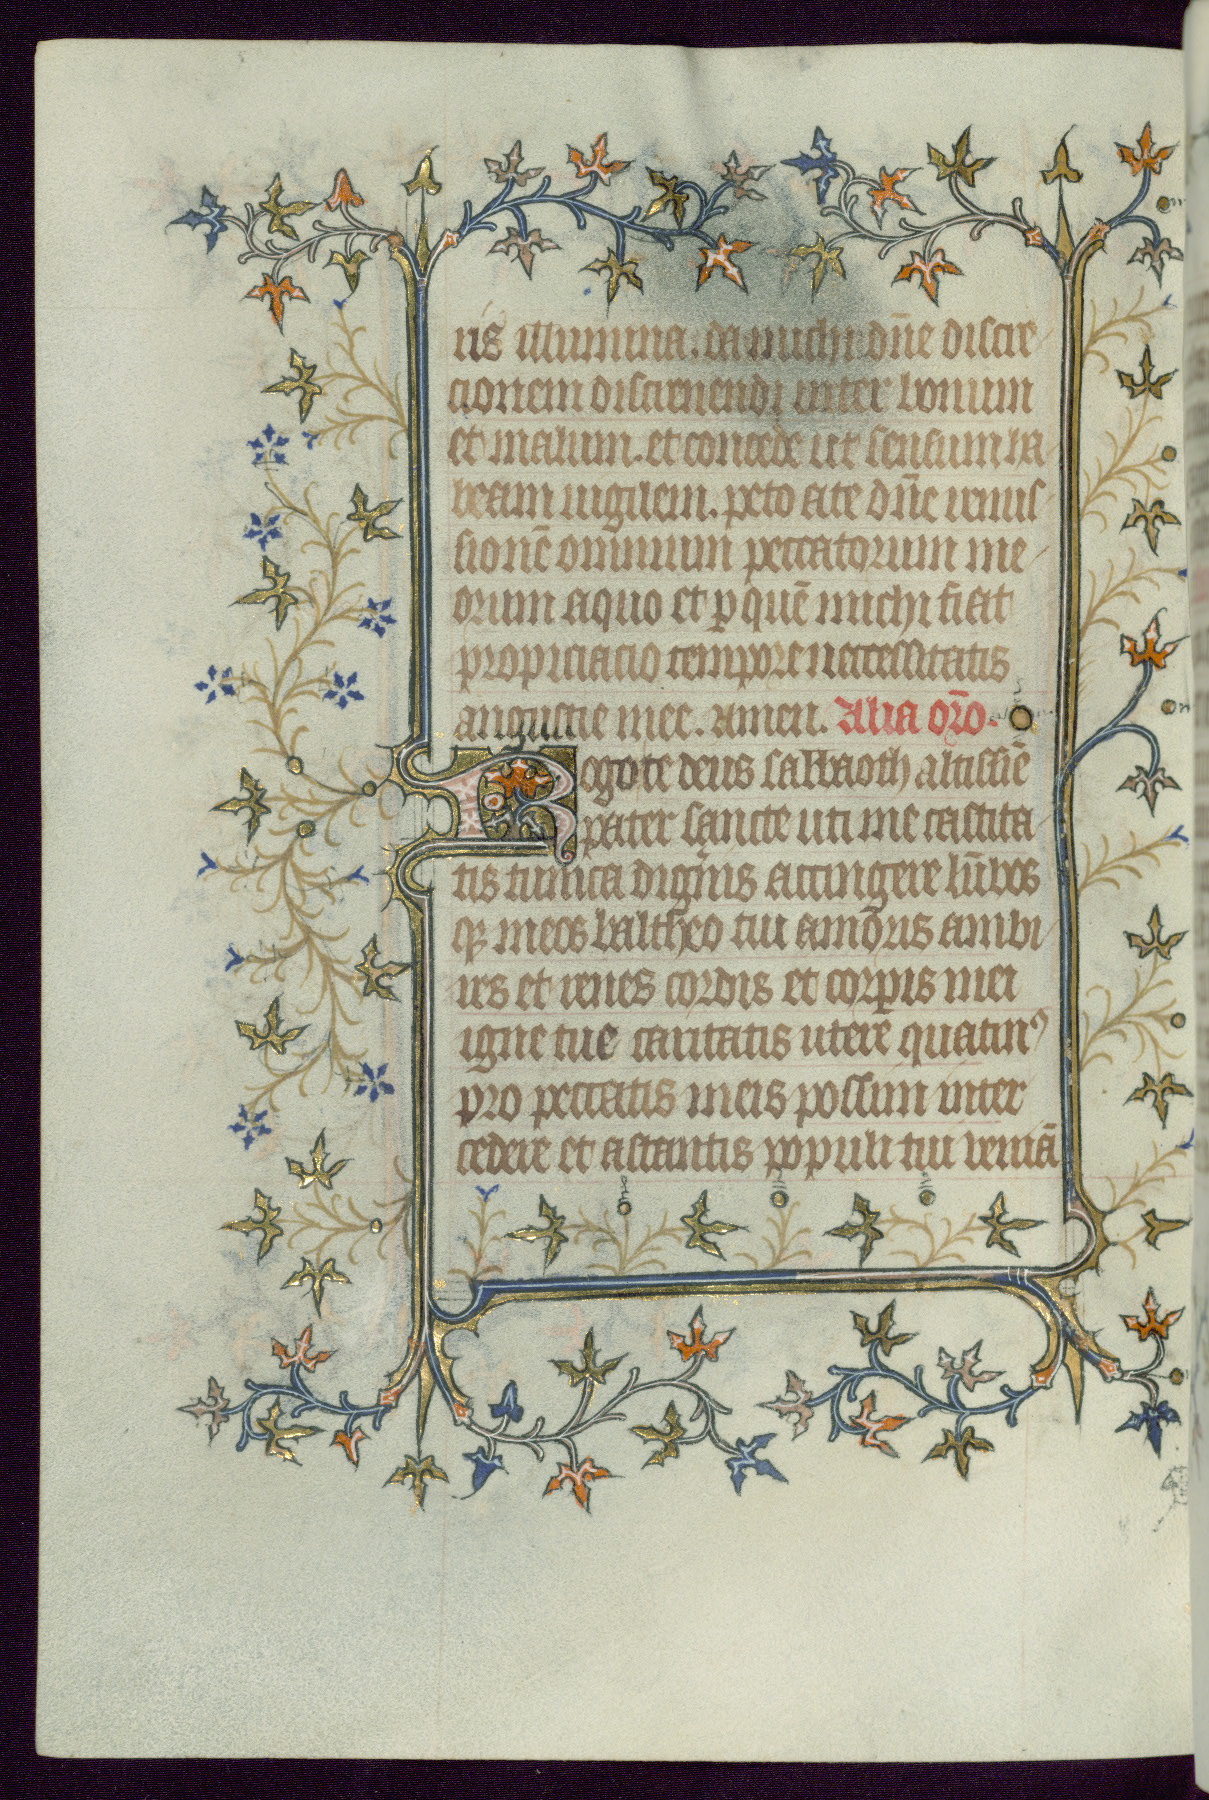 ris illumina. da michi dn̄e discre
cionem discernendi inter bonum
et malum. et concede ut sensum ha
beam uigilem. peto a te dn̄e remis
sionē omnium peccatorum me
orum a quo et p quē michi fiat
propiciacio tempore necessitatis
angustie mee. amen. Alia orō.
Rogo te deus sabbaoth altissīe
pater sancte uti me castita
tis tunica digneris accingere lūbos
qꝫ meos baltheo tui amoris ambi
res et renes cordis et corpis mei
igne tue caritatis urere quatinꝰ
pro peccatis meis possim inter
cedere et astantis populi tui veniā